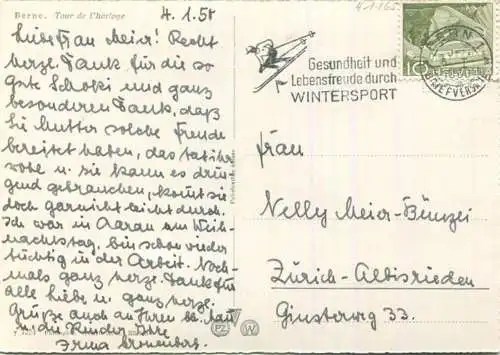 Berne. Tour de l'horloge
4.1.58
Liebe Frau Meier! Recht
herzl. Dank für die so
gute Schoki und ganz
besonderen Dank, daß
Sie Mutter solche Freude
bereitet haben, das tat ihr
wohl u. sie kann es drin-
gend gebrauchen, kommt sie
doch gar nicht leicht durch.
Ich war in Aarau am Weih-
nachstag, bin schon wieder
tüchtig in der Arbeit. Noch-
mals ganz herzl. Dank für
alle Liebe u. ganz herzl.
Grüße auch an Ihren
u. die Kinder Ihre
Irma
Gesundheit und
Lebensfreude durch
WINTERSPORT
BERN 1
BRIEFVERSAND
10
Frau
Nelly Meier-Bünzei
Zürich-Altisrieden
Ginsterweg 33.
PZ W